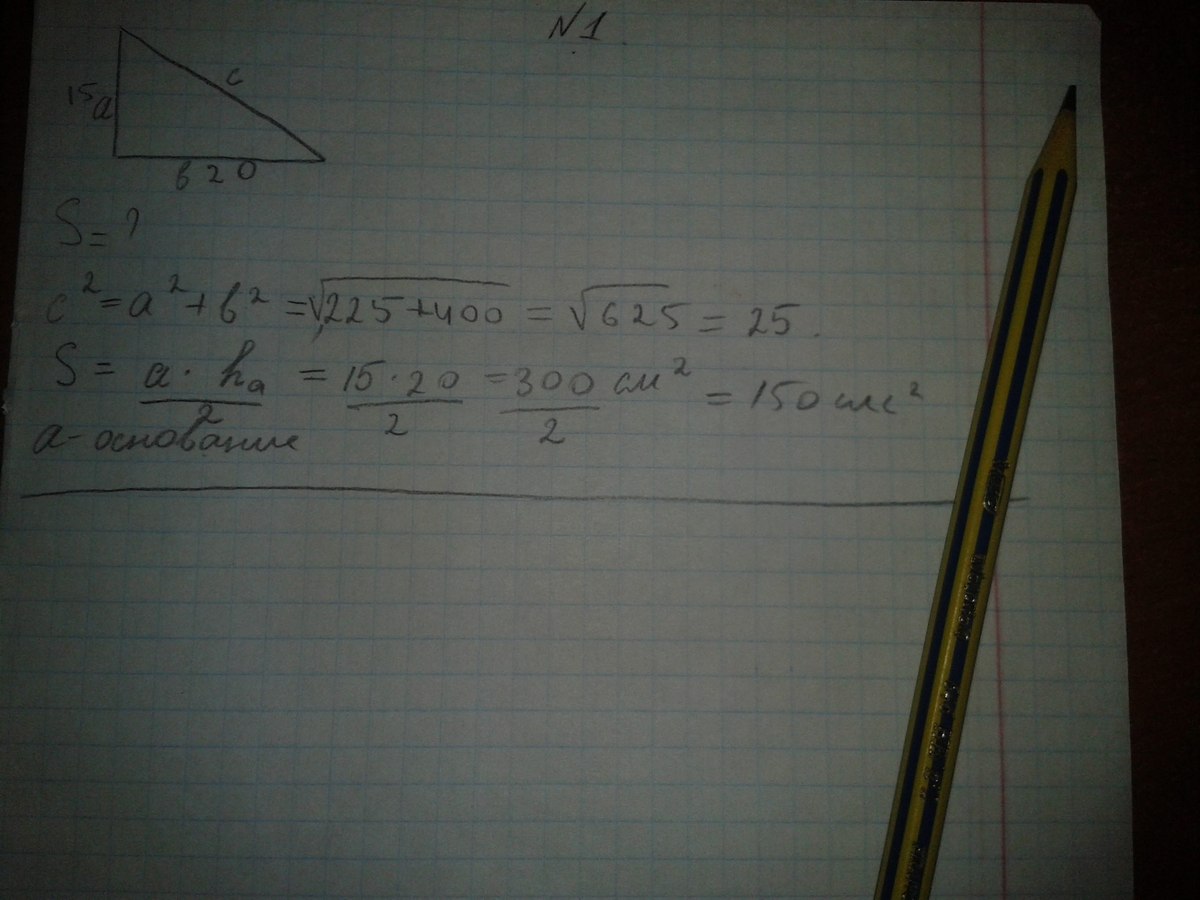 N1
c
15 a
b 20
S = ?
c² = a² + b² = √225+400 = √625 = 25.
S = a · hₐ / 2 = 15 · 20 / 2 = 300 / 2 см² = 150 см²
a - основание